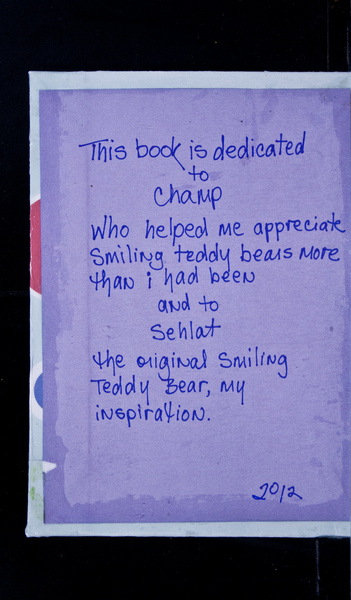 This book is dedicated
to
Champ
Who helped me appreciate
Smiling teddy bears more
than i had been
and to
Sehlat
the original Smiling
Teddy Bear, my
inspiration.
2012